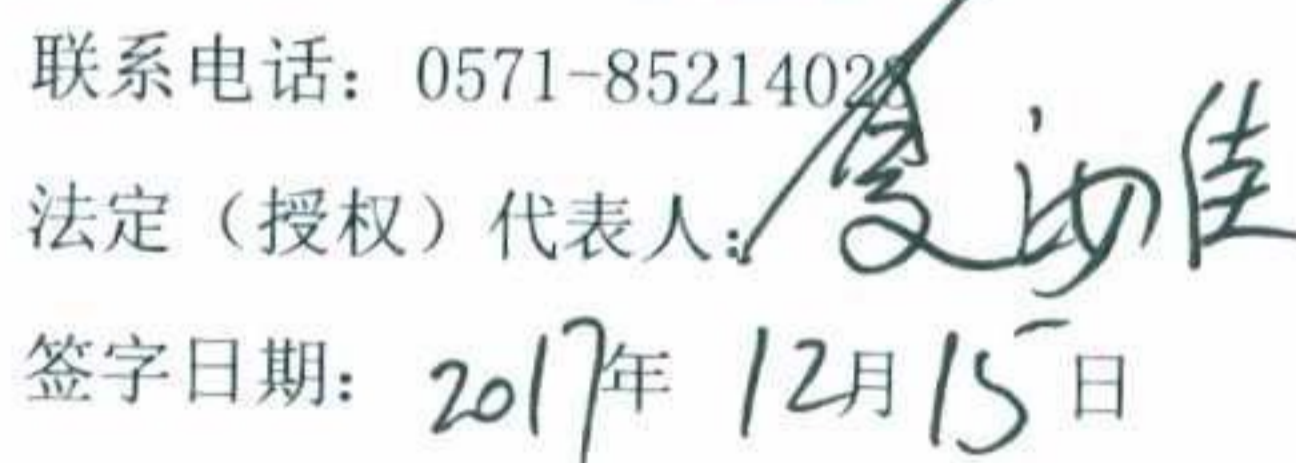 联系电话：0571-8521402
法定（授权）代表人：
签字日期：2017年 12月15日